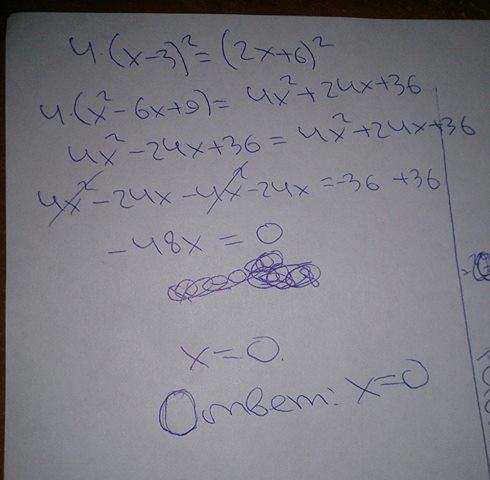 4·(x-3)²=(2x+6)²
4·(x²-6x+9)= 4x²+24x+36
4x²-24x+36=4x²+24x+36
4x²-24x-4x²-24x=-36+36
-48x=0
x=0.
Ответ: x=0